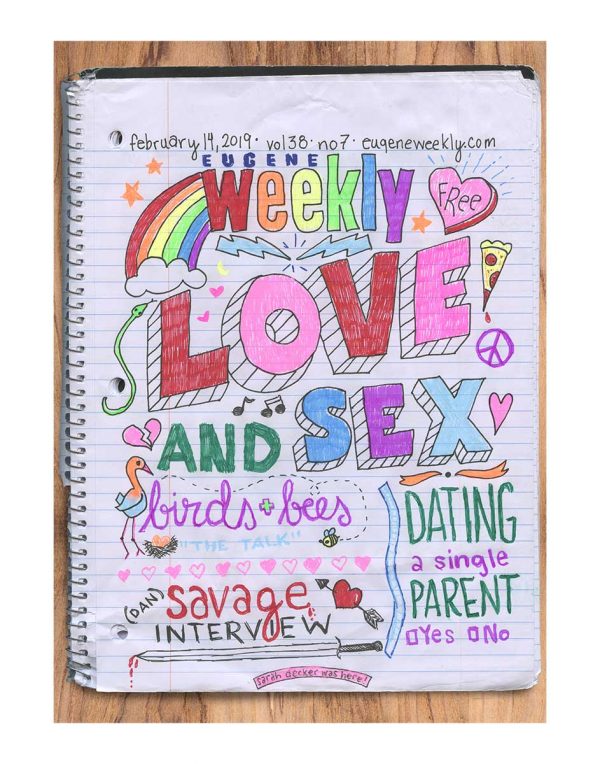 february 14, 2019 · vol 38 · no 7 · eugeneweekly.com
EUGENE
weekly
FREE
LOVE
AND SEX
birds + bees
"THE TALK"
DATING
a single
PARENT
Yes No
(DAN) savage
INTERVIEW
sarah decker was here!